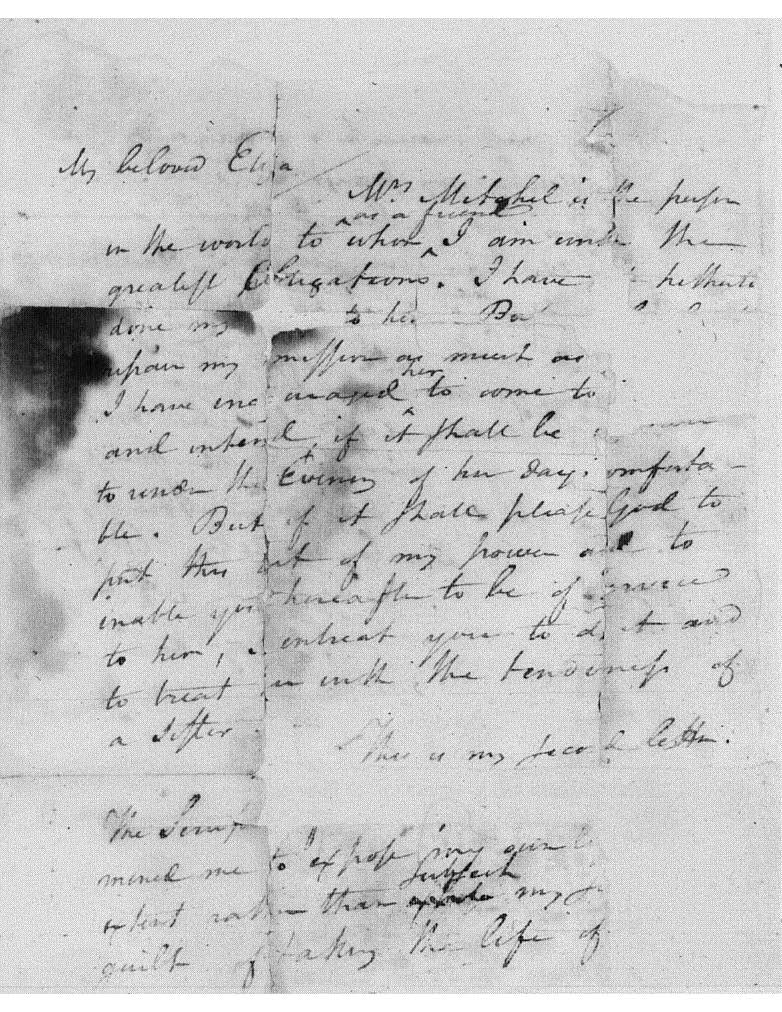 My beloved Eliza
Mrs Mitchel is the person
in the world to whom as a friend I am under the
greatest Obligations. I have hitherto
done my to her. But
repair my omission as much as
I have encouraged her to come to
and intend, if it shall be
to render the Evening of her days comforta-
ble. But if it shall please God to
put this out of my power and to
inable you hereafter to be of service
to her, entreat you to do it and
to treat with the tenderness of
a Sister
This is my second letter.
The
mined me to expose my own
extent rather than subject my
guilt of taking the life of